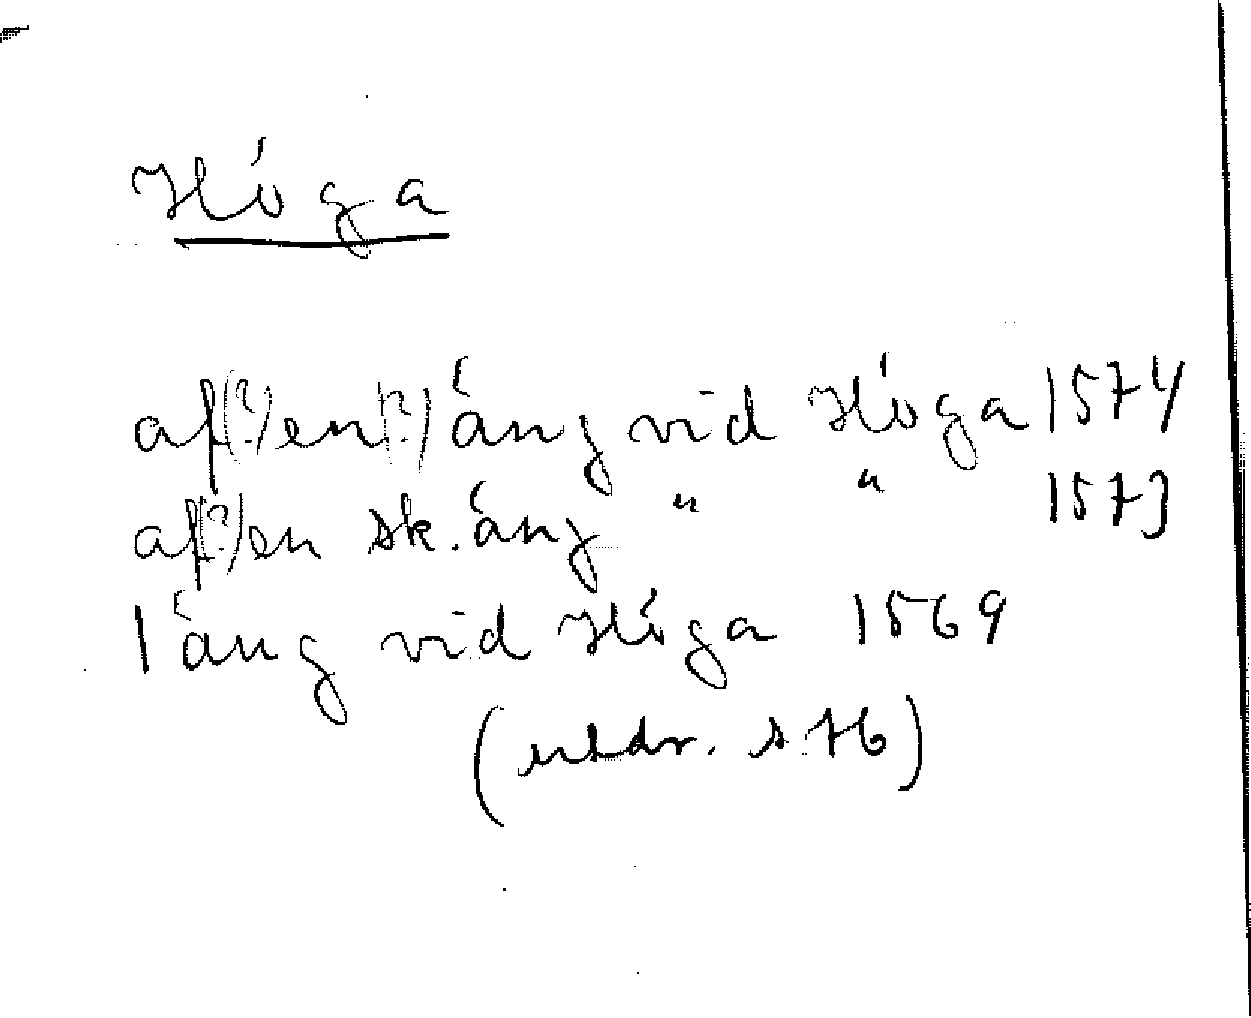 Hóga
af(?) en(?) áng vid Hóga 1574
af(?) en sk. áng " " 1573
1 áng vid Hóga 1569
(utdr. s. 76)